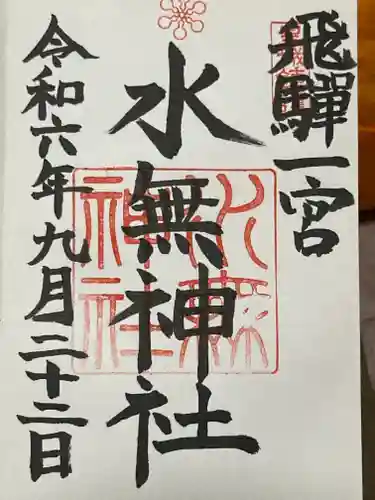 飛騨一宮
水無神社
令和六年九月二十二日
水無神社